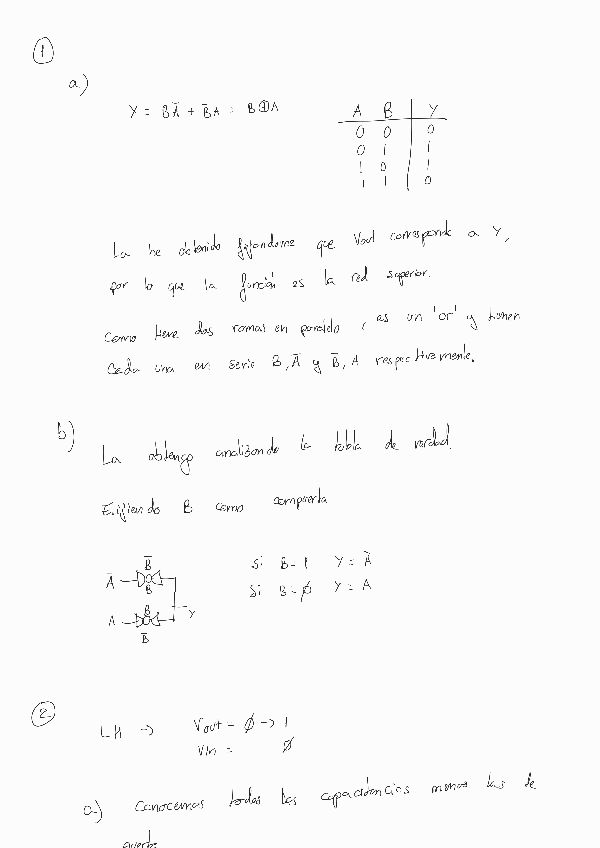 1
a)
Y = BĀ + B̄A = B⊕A
A B Y
0 0 0
0 1 1
1 0 1
1 1 0
La he obtenido fijandome que Vout corresponde a Y,
por lo que la función es la red superior.
Como tiene dos ramas en paralelo, es un 'or' y tienen
Cada una en serie B, Ā y B̄, A respectivamente.
b)
La obtengo analizando la tabla de verdad.
Eligiendo B como compuerta
Si B=1 Y = Ā
Si B=0 Y = A
B̄
Ā
B
B
A
Y
B̄
2
LH -> Vout = 0 -> 1
Vin = 0
a) Conocemos todas las capacitancias menos las de